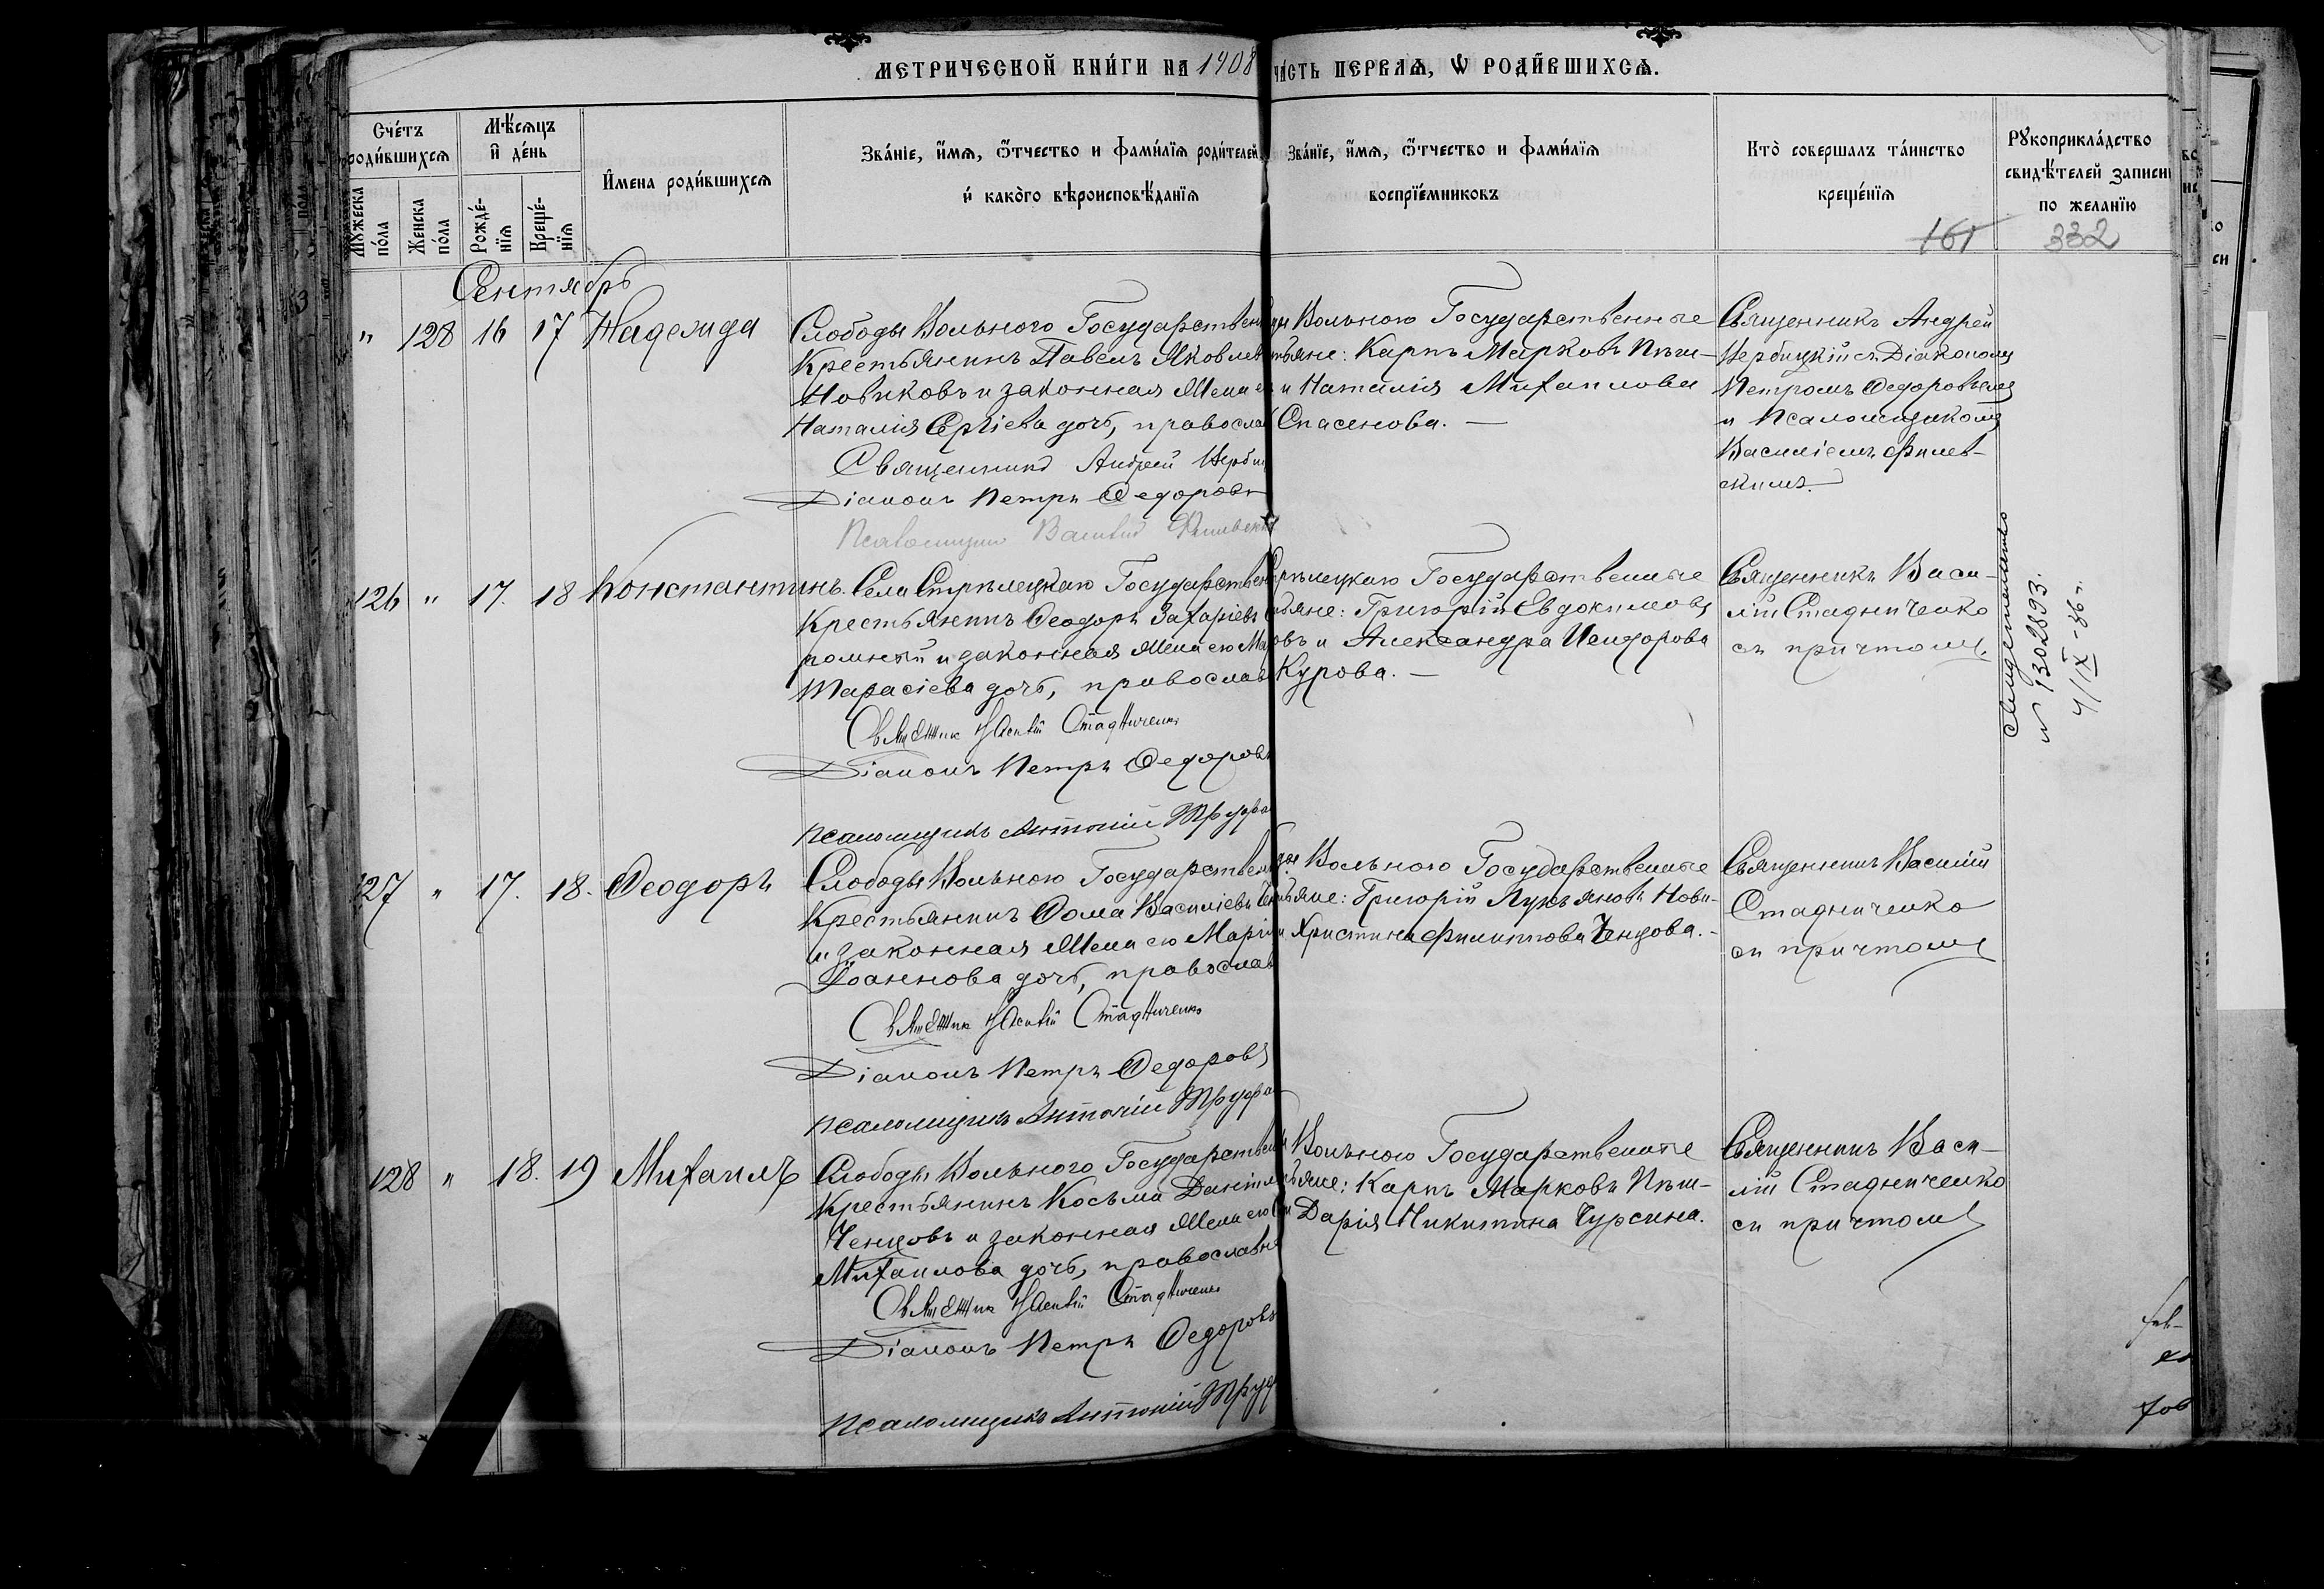 МЕТРИЧЕСКОЙ КНИ́ГИ НА 1908
ЧА́СТЬ ПЕРВАѦ, Ѡ РОДИ́ВШИХСѦ.
Сче́тъ родившихсѧ
Мꙋжеска по́ла
Женска по́ла
Мѣ́сѧцъ и҆ де́нь
Рожде́-нїѧ
Креще́-нїѧ
И҆мена роди́вшихсѧ
Зва́нїе, и҆́мѧ, ѻ҆́тчество и фами́лїѧ роди́телей
и҆ како́го вѣроисповѣ́данїѧ
Зва́нїе, и҆́мѧ, ѻ҆́тчество и фами́лїѧ
воспрїе́мниковъ
Кто̀ совершалъ та́инство
креще́нїѧ
Рꙋкоприкла́дство
свидѣ́телей записи
по желанїю
161
332
Сентябрь
" 128 16 17 Надежда
Слободы Вольного Государствен
Крестьянинъ Павелъ Яковлев
Новиковъ и законная жена е
Наталія Сергіева дочь, правосла
Священникъ Андрей Щерби
Діаконъ Петръ Федоровъ
Псаломщикъ Василій Филевскі
Вольного Государственные
тьяне: Карпъ Марковъ Пѣш-
и Наталія Михаилова
Спасенова. —
Священникъ Андрей
Щербицкій съ Діакономъ
Петромъ Федоровымъ
и Псаломщикомъ
Василіемъ Филев-
скимъ.
126 " 17. 18 Константинъ.
Села Стрѣлецкаго Государствен
Крестьянинъ Феодоръ Захаріевъ
ромной и законная жена его Ма
Тарасіева дочь, православ
Священник Василій Стадниченко
Діаконъ Петръ Федоровъ
Псаломщикъ Антоній Труфа
трѣлецкаго Государственные
тьяне: Григорій Евдокимовъ
овъ и Александра Исидорова
Курова. —
Священникъ Васи-
лій Стадниченко
съ причтомъ.
№ 1302893.
4/IX-36 г.
127 " 17. 18. Феодоръ
Слободы Вольного Государствен
Крестьянинъ Фома Василіевъ
и законная жена его Марія
Іоаннова дочь, православ
Священник Василій Стадниченко
Діаконъ Петръ Федоровъ
Псаломщикъ Антоній Труфа
ды Вольного Государственные
тьяне: Григорій Лукьяновъ Нови-
и Христина Филиппова Ченцова. -
Священникъ Василій
Стадниченко
съ причтомъ
128 " 18. 19 Михаилъ
Слободы Вольного Государствен
Крестьянинъ Косьма Даніил
Ченцовъ и законная жена его
Михаилова дочь, православн
Священник Василій Стадниченко
Діаконъ Петръ Федоровъ
Псаломщикъ Антоній Труф
Вольного Государственные
тьяне: Карпъ Марковъ Пѣш-
и Дарія Никитина Чурсина.
Священникъ Васи-
лій Стадниченко
съ причтомъ